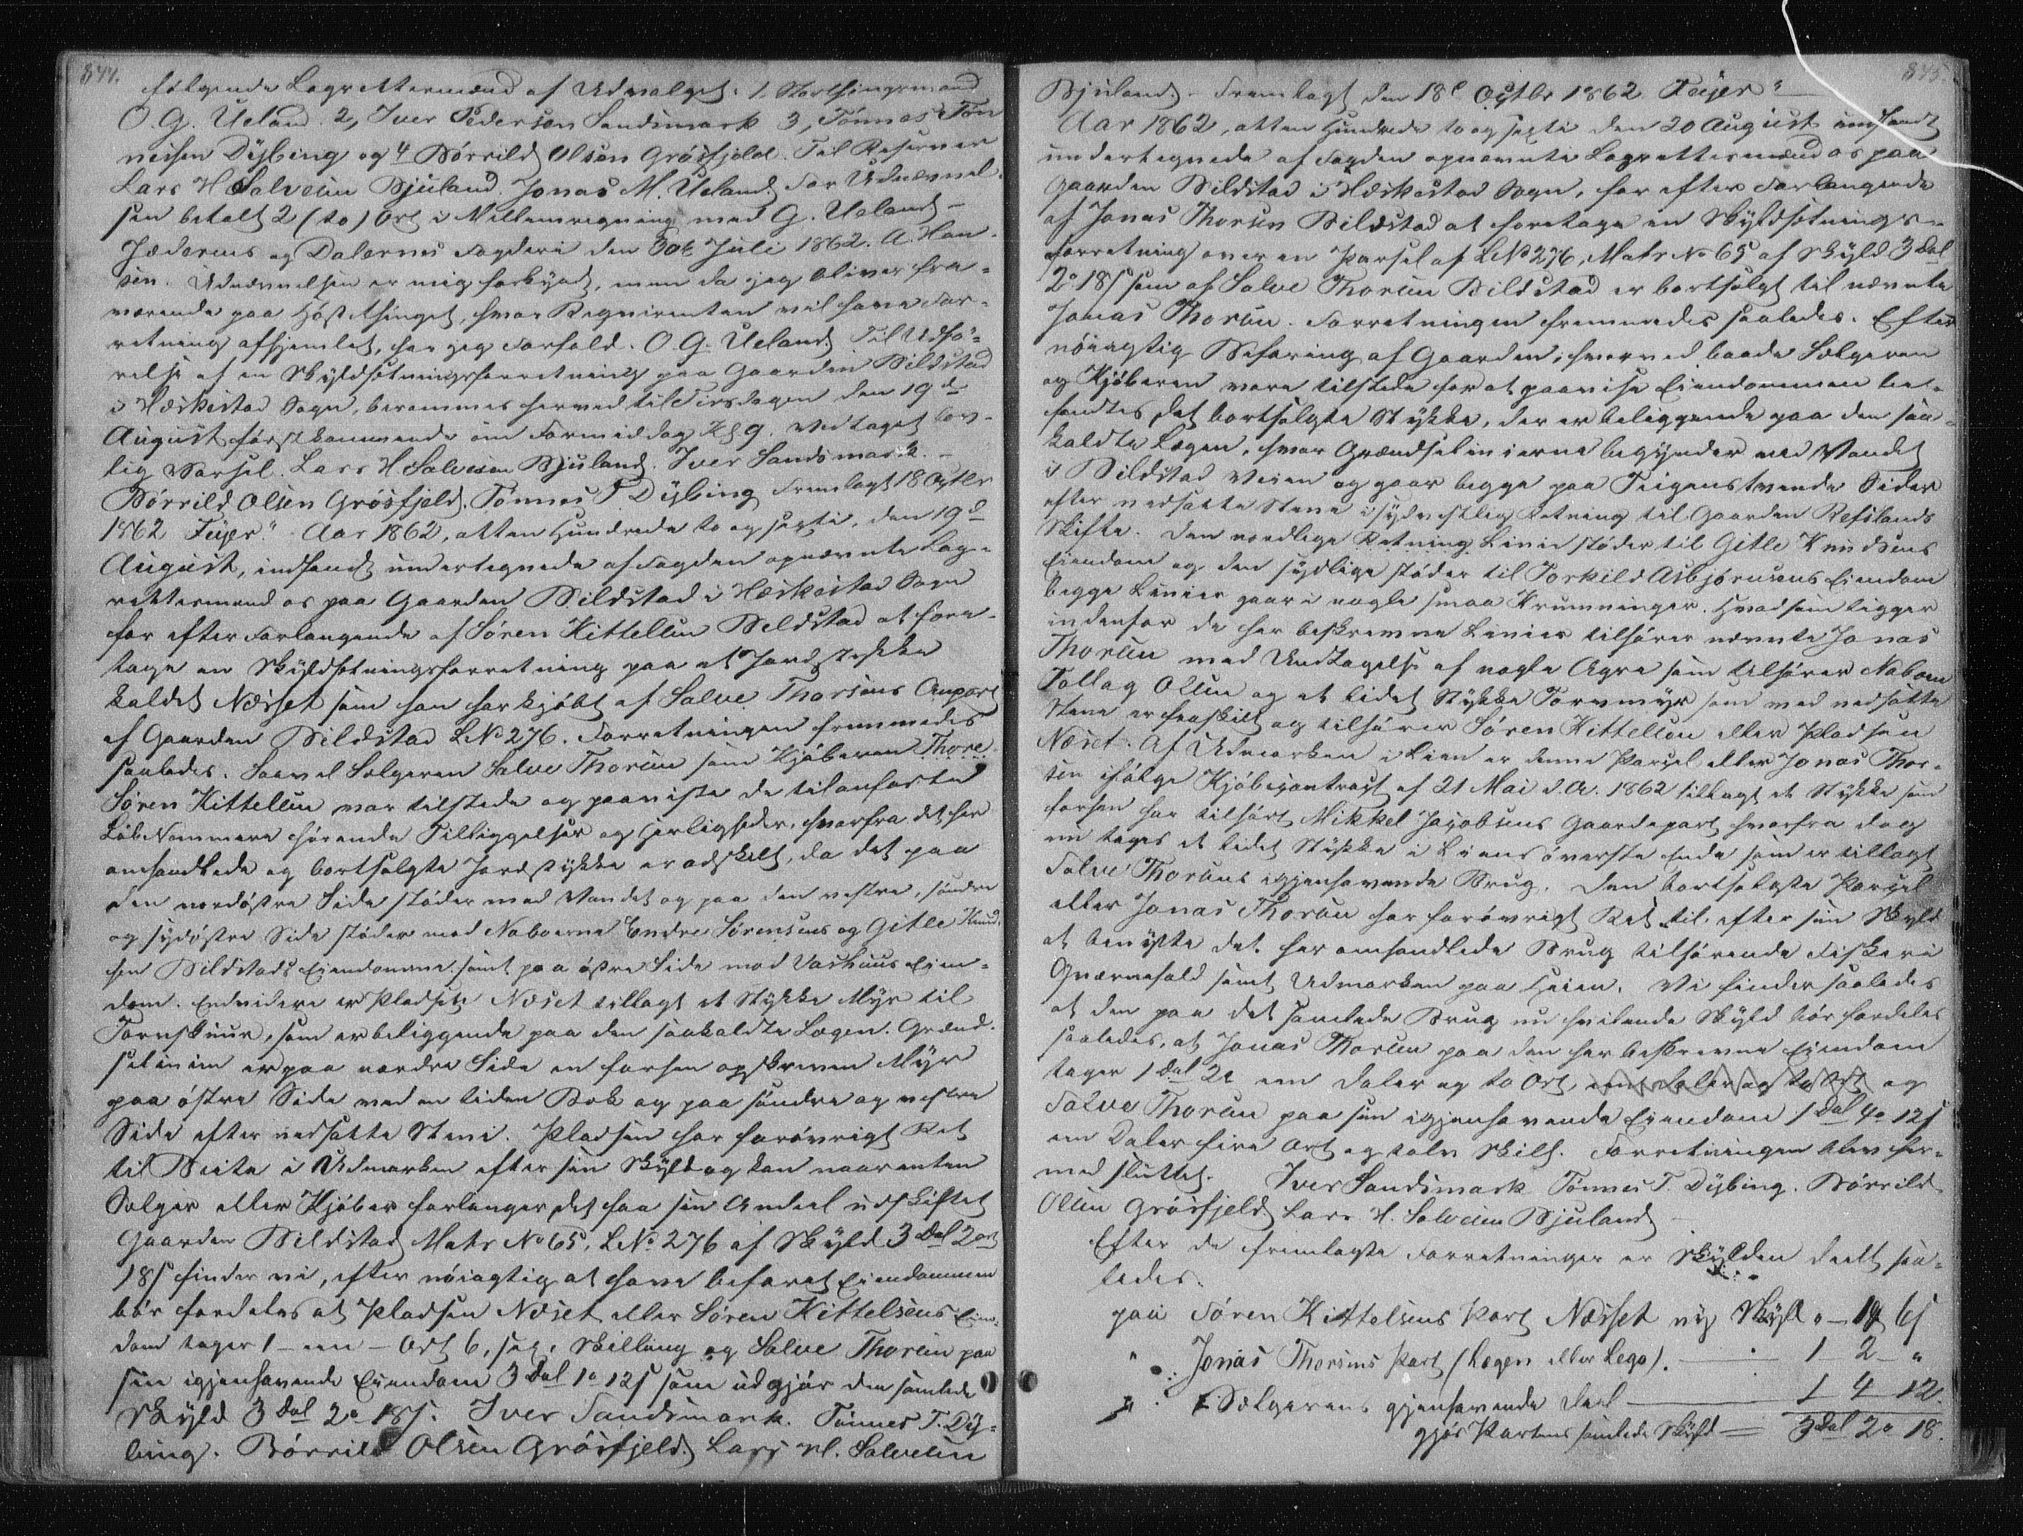 844.
følgende Lagrettemænd af Udvalget: 1, Storthingsmand
O. G. Ueland 2, Iver Pedersen Sandsmark 3, Tønnes Tøn
nesen Dybing og 4 Børrild Olsen Grøsfjeld. Til Reserver
Lars H Salvesen Bjuland. Jonas M. Ueland. For Udnævnel-
sen betalt 2 (to) Ort i Mellemregning med G. Ueland -
Jæderens og Dalernes Fogderi den 30te Juli 1862. A. Han-
sen. Udnævnelsen er mig forkyndt, men da jeg bliver fra-
værende paa Høstethinget, hvor Reqvirenten vil have For-
retning afhjemlet, har jeg Forfald. O. G. Ueland. Til Udfø-
relse af en Skyldsætningsforretning paa Gaarden Bildstad
i Heskestad Sogn, berammes herved til Tirsdagen den 19de
August førstkommende om Formiddag Kl 9. Vedtaget lov-
lig Varsel. Lars H Salvesen Bjuland. Iver Sandsmark. -
Børrild Olsen Grøsfjeld. Tønnes T Dybing Fremlagt 18 Octbr
1862 Feyer." Aar 1862, atten Hundrede to og sexti, den 19de
August, indfandt undertegnede af Fogden opnævnte Lag-
rettemænd os paa Gaarden Bildstad i Heskestad Sogn
for efter Forlangende af Søren Kittelsen Bildstad at fore-
tage en Skyldsætningsforretning paa et Jordstykke
kaldet Næsset som han har kjøbt af Salve Thorsens Anpart
af Gaarden Bildstad LNo 276. Forretningen fremmedes
saaledes. Saavel Sælgeren Salve Thorsen som Kjøberen Thore
Søren Kittelsen var tilstede og paaviste de til anførte
Løb Nummere hørende Tilliggelser og Herligheder, hvorfra det her
omhandlede og bortsolgte Jordstykke er adskilt, da det paa
den nordøstre Side støder mod Vandet og paa den vestre, søndre
og sydøstre Side støder mod Naboerne Endre Sørensens og Gitle Knud-
sen Bildstads Eiendomme samt paa østre Side mod Vashuus Eien-
dom. Endvidere er Pladsen Næset tillagt et Stykke Myr til
Torvskuur, som er beliggende paa den saakaldte Lægen. Grænd-
selinien er paa nordre Side en forhen opskreven Myr
paa østre Side ved en liden Bæk og paa søndre og vestre
Side efter nedsatte Stene. Pladsen har forøvrigt Ret
til Beite i Udmarken efter sin Skyld og kan naar enten
Sælger eller Kjøber forlanger det faa sin Andeel udskiftet
Gaarden Bildstad Matr No 65, LNo 276 af Skyld 3 Dal 2 ort
18 s finder vi, efter nøiagtig at have befaret Eiendommen
bør fordeles at Pladsen Næset eller Søren Kittelsens Eien-
dom tager 1 - een - Ort 6, sex, Skilling og Salve Thorsen paa
sin igjenhavende Eiendom 3 Dal 1o 12s som udgjør den samlede
Skyld 3 Dal 2o 18s. Iver Sandsmark. Tønnes T. Dy-
bing. Børrild Olsen Grøsfjeld. Lars H. Salvesen
845.
Bjuland. - Fremlagt den 18de Octbr 1862 Feyer"
Aar 1862, atten Hundrede to og sexti den 20 August indfandt
undertegnede af Fogden opnævnte Lagrettemænd os paa
Gaarden Bildstad i Heskestad Sogn, for efter Forlangende
af Jonas Thorsen Bildstad at foretage en Skyldsætnings-
forretning over en Parsel af LNo 276, Matr No 65 af Skyld 3 Dal
2o 18s som af Salve Thorsen Bildstad er bortsolgt til nævnte
Jonas Thorsen. Forretningen fremmedes saaledes. Efter
nøiagtig Befaring af Gaarden, hvorved baade Sælgeren
og Kjøberen vare tilstede for at paavise Eiendommen be-
fandtes, det bortsolgte Stykke, der er beliggende paa den saa-
kaldte Lægen, hvor Grændselinierne begynder ved Vandet
i Bildstad Veien og gaar begge paa Teigens tvende Sider
efter nedsatte Stene i sydvestlig Retning til Gaarden Refslands
Skifte. Den nordlige Retnings Linie støder til Gitle Knudsens
Eiendom og den sydlige støder til Torkild Asbjørnsens Eiendom
begge Linier gaar i nogle smaa Krumninger. Hvad som ligger
indenfor de her beskrevne Linier tilhører nævnte Jonas
Thorsen med Undtagelse af nogle Agre som tilhører Naboen
Tollag Olsen og et lidet Stykke Torvmyr som med nedsatte
Stene er fraskilt og tilhører Søren Kittelsen eller Pladsen
Næset. Af Udmarken i Lien er denne Parsel eller Jonas Thor-
sen ifølge Kjøbecontract af 21 Mai d. A. 1862 tillagt et Stykke som
forhen har tilhørt Mikkel Jacobsens Gaardepart hvorfra dog
nu tages et lidet Stykke i Liens øverste Ende som er tillagt
Salve Thorsens igjenhavende Brug. Den bortsolgte Parsel
eller Jonas Thorsen har forøvrigt Ret til efter sin Skyld
at benytte det her omhandlede Brug tilhørende Fiskeri
Qværnefald samt Udmarken paa Heien. Vi finder saaledes
at den paa det samlede Brug nu hvilende Skyld bør fordeles
saaledes, at Jonas Thorsen paa den her beskrevne Eiendom
tager 1 Dal 2o een Daler og to Ort een Daler og to Ort og
Salve Thorsen paa sin igjenhavende Eiendom 1 Dal 4o 12s
een Daler fire Ort og tolv Skill. Forretningen blev her-
med sluttet. Iver Sandsmark Tønnes T. Dybing. Børrild
Olsen Grøsfjeld Lars H. Salvesen Bjuland -
Efter de fremlagte Forretninger er Skylden deelt saa-
ledes.
paa Søren Kittelsens Part Næsset ny Skyld " - 1o 6s
" Jonas Thorsens Part (Lægen eller Lega). 1 2 - "
" Sælgerens gjenhavende Deel 1 4 12.
gjør Partens samlede Skyld - 3 Dal 2o 18.